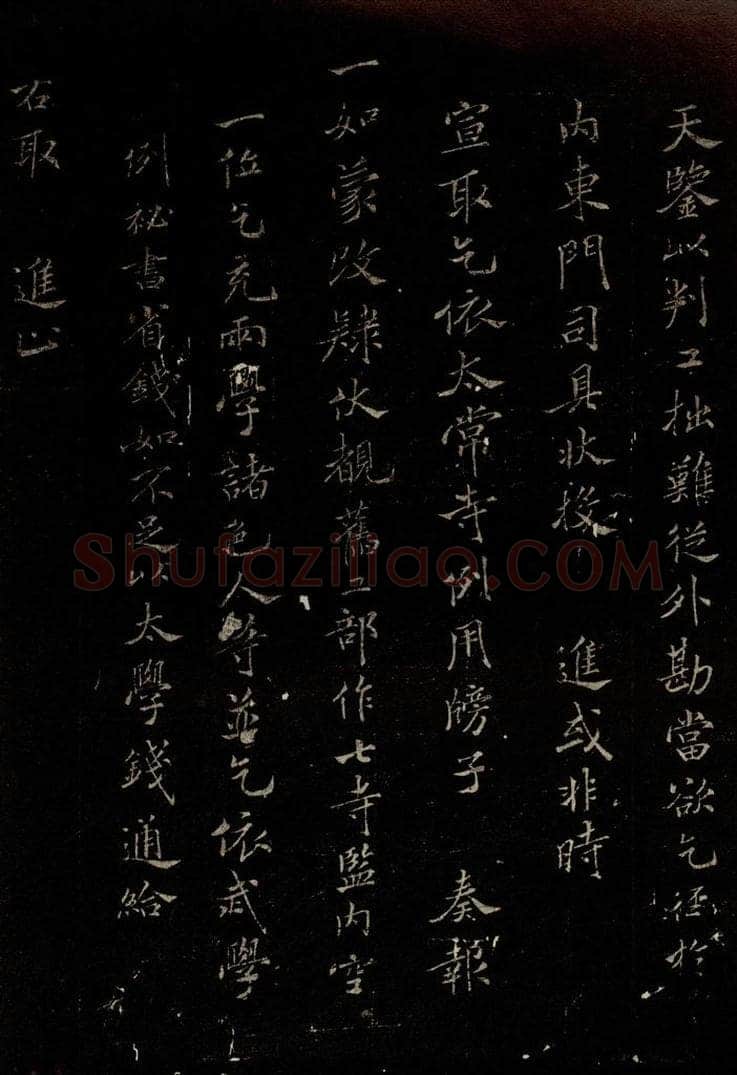 天鑒以判工拙難從外勘當欲乞徑於
內東門司具狀投進或非時
宣取乞依太常寺例用牓子奏報
一如蒙改肄伏覩舊工部作七寺監內空
一位乞充兩學諸色人等並乞依武學
例祕書省錢如不足以太學錢通給
右取進止
Shufaziliao.COM